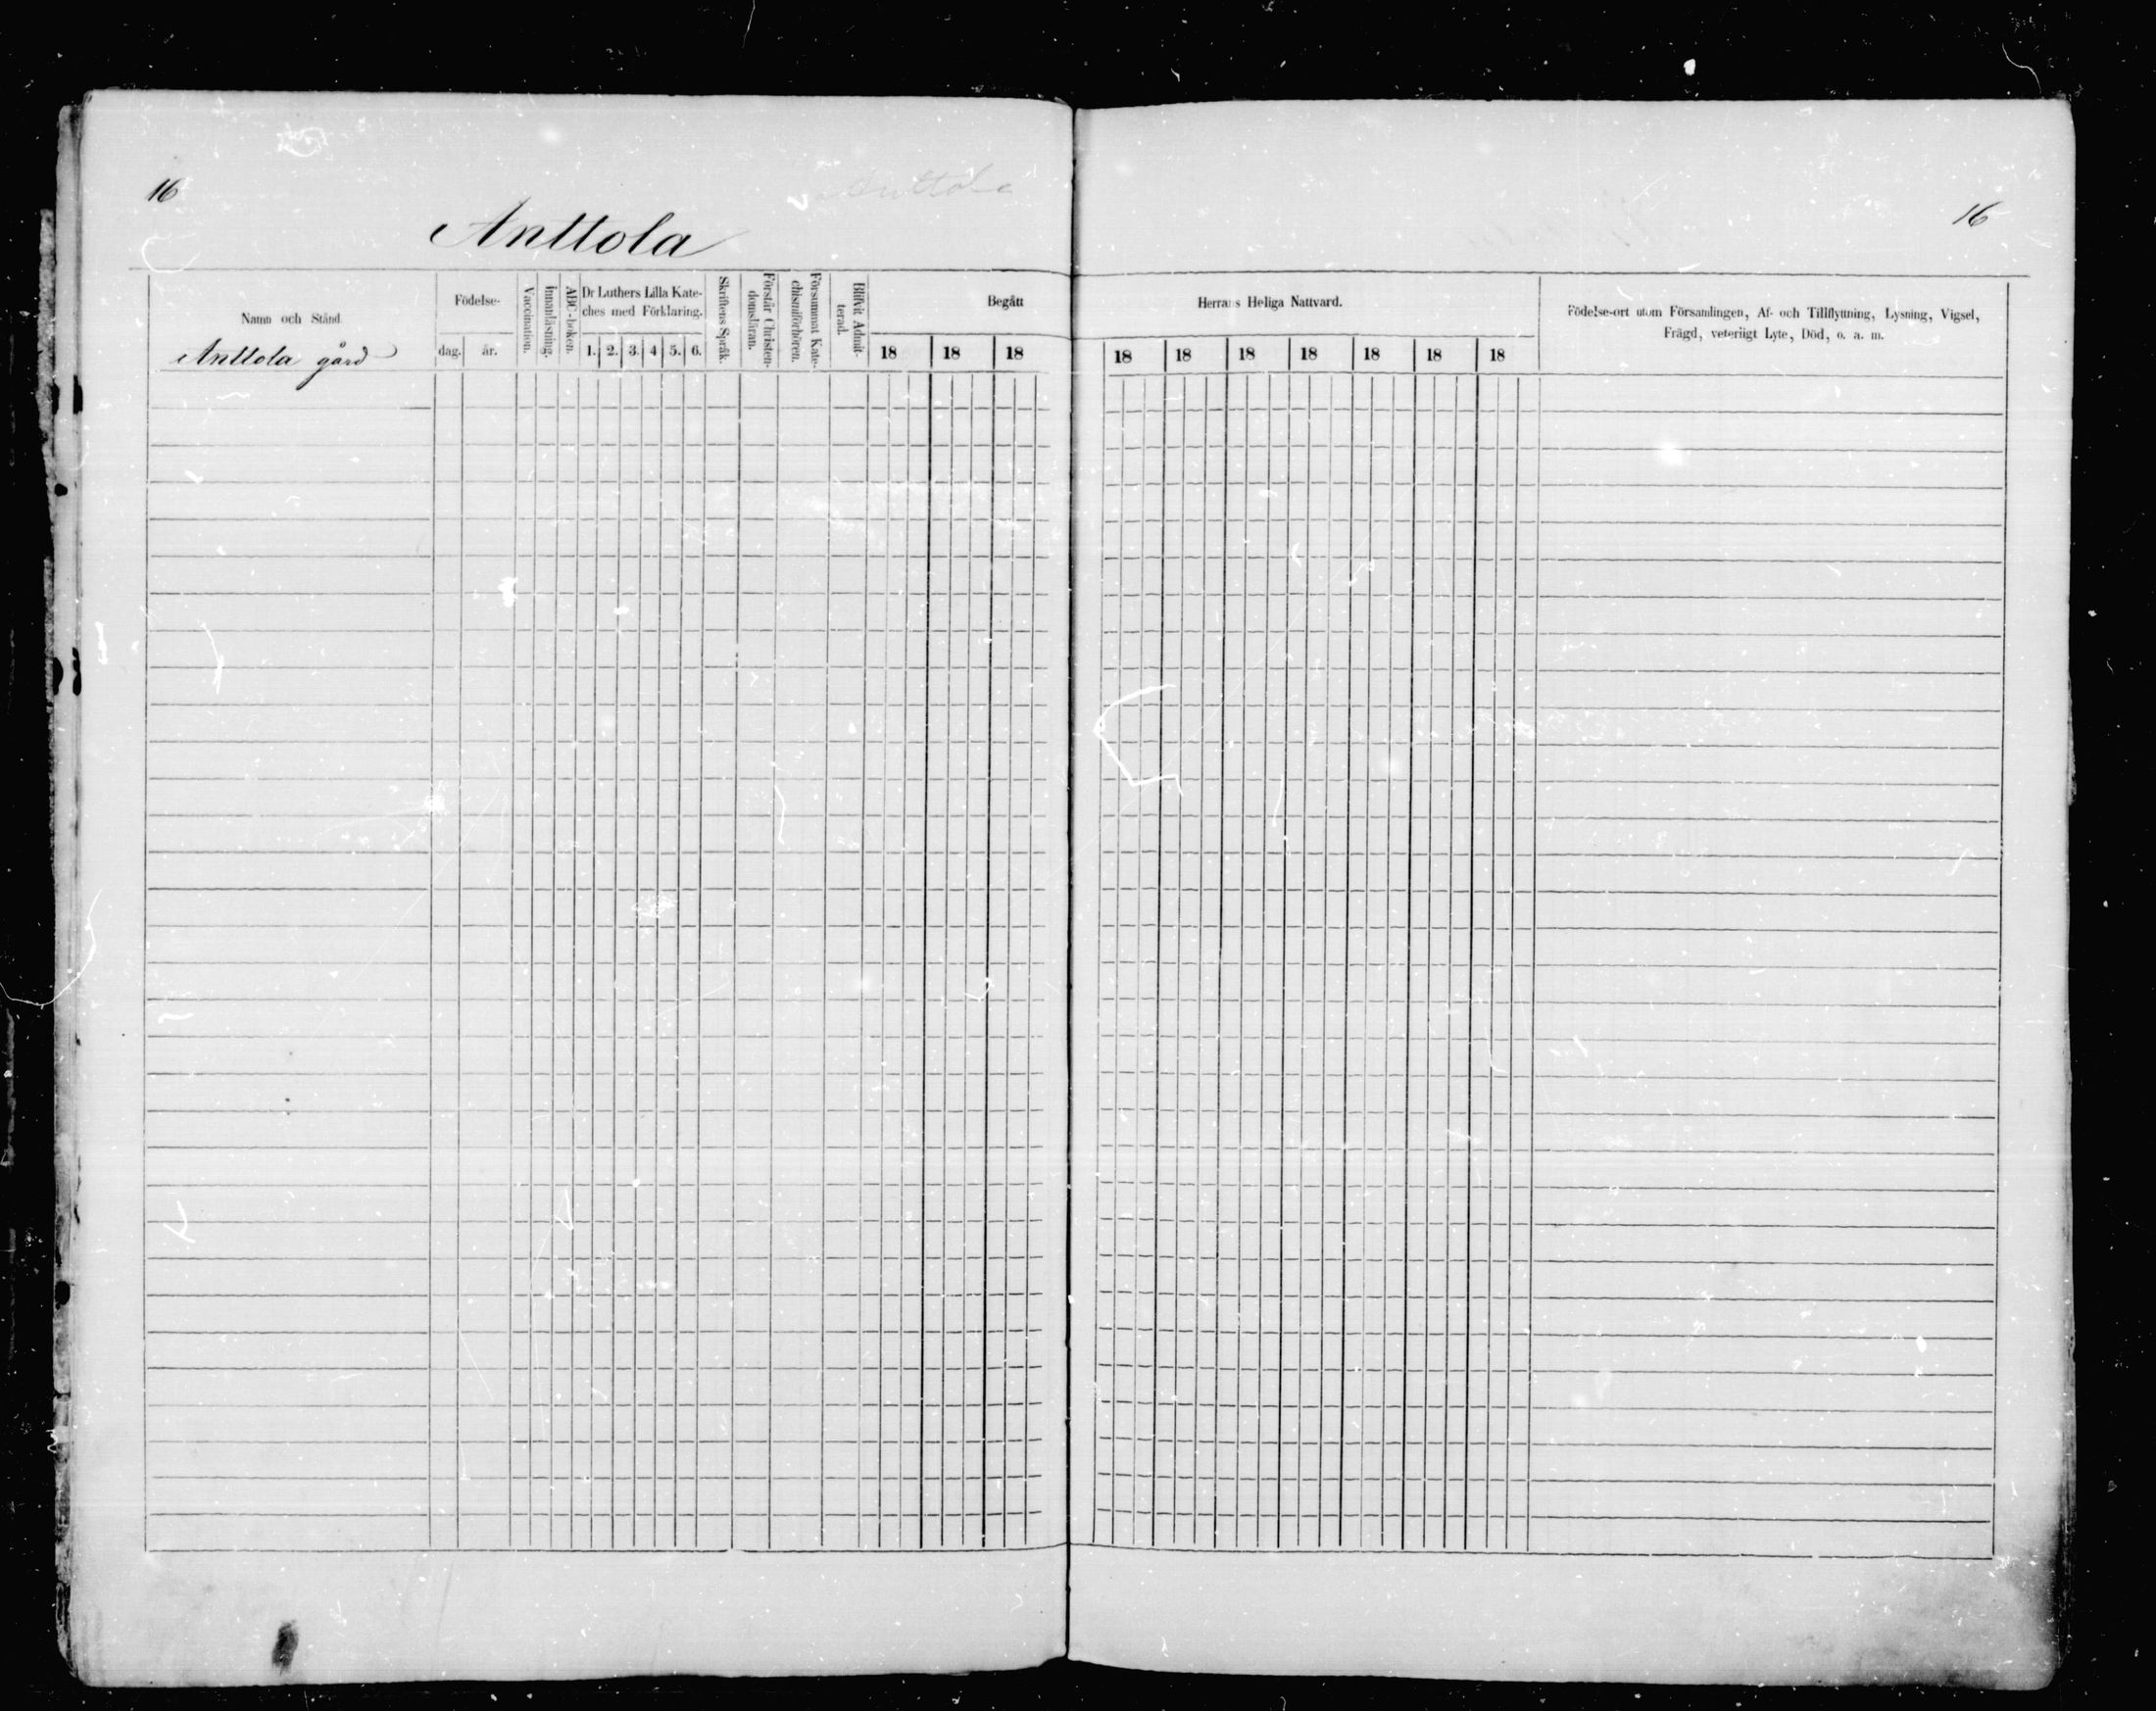 16
Anttola
Anttola
16
Namn och Stånd.
Födelse-
dag.
år.
Vaccination.
Innanläsning.
ABC-boken.
Dr Luthers Lilla Kate-
ches med Förklaring.
1. 2. 3. 4 5. 6.
Skriftens Språk.
Förstår Christen-
domsläran.
Försummat Kate-
chismiförhören.
Blifvit Admit-
terad.
Begått
18 18 18
Herrans Heliga Nattvard.
18 18 18 18 18 18 18
Födelse-ort utom Församlingen, Af- och Tillflyttning, Lysning, Vigsel,
Frägd, veterligt Lyte, Död, o. a. m.
Anttola gård